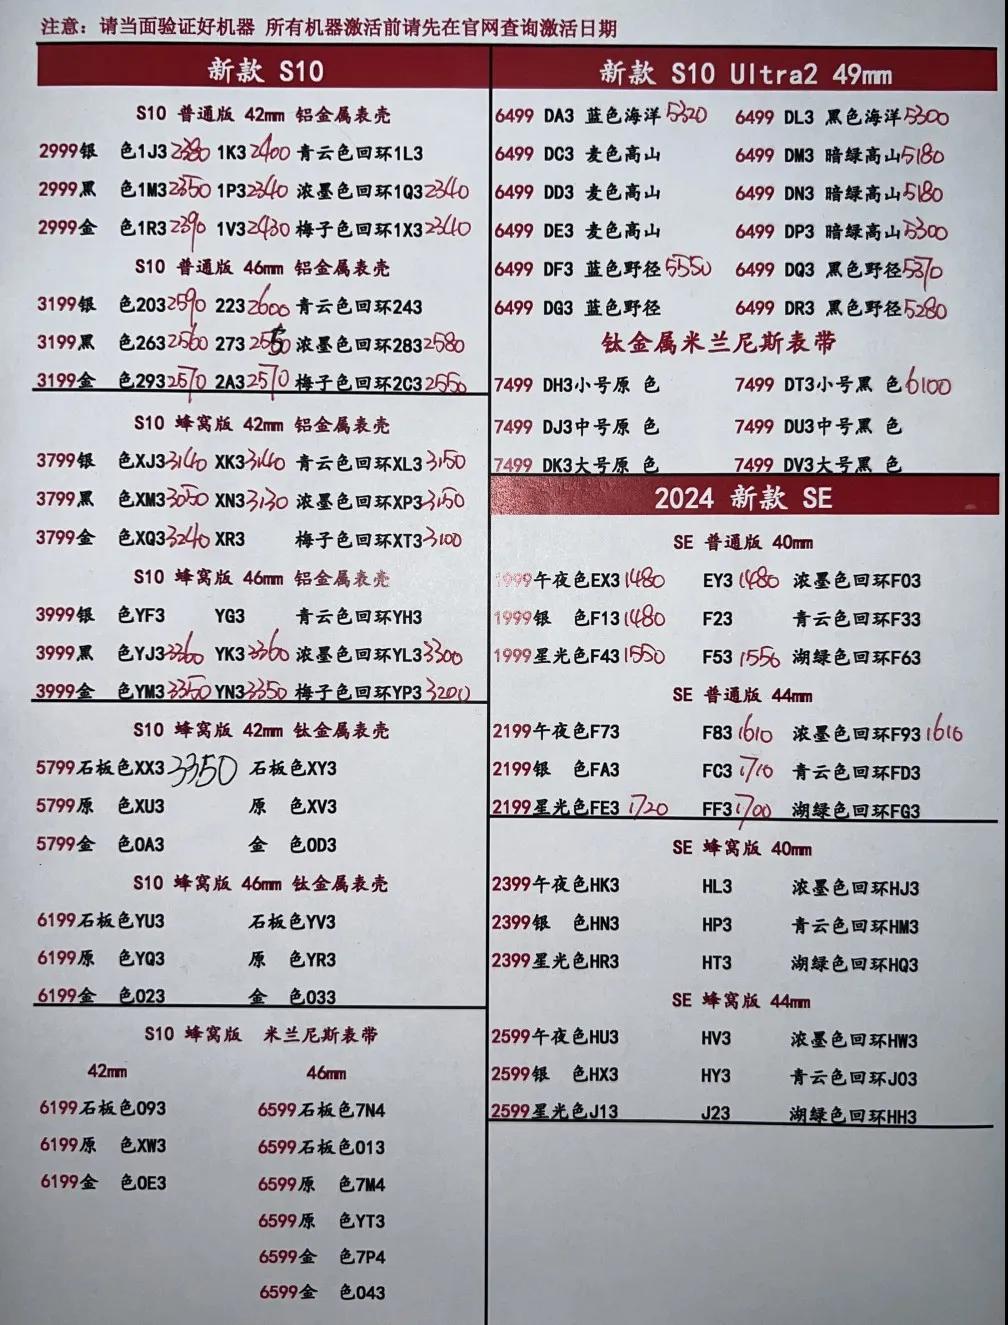 注意：请当面验证好机器 所有机器激活前请先在官网查询激活日期
新款 S10
S10 普通版 42mm 铝金属表壳
2999银 色1J32380 1K32400 青云色回环1L3
2999黑 色1M32350 1P32340 浓墨色回环1Q32340
2999金 色1R32390 1V32430 梅子色回环1X32340
S10 普通版 46mm 铝金属表壳
3199银 色2032590 2232600 青云色回环243
3199黑 色2632560 2732550 浓墨色回环2832580
3199金 色2932570 2A32570 梅子色回环2C32550
S10 蜂窝版 42mm 铝金属表壳
3799银 色XJ33140 XK33140 青云色回环XL33150
3799黑 色XM33050 XN33130 浓墨色回环XP33150
3799金 色XQ33240 XR3 梅子色回环XT33100
S10 蜂窝版 46mm 铝金属表壳
3999银 色YF3 YG3 青云色回环YH3
3999黑 色YJ33360 YK33360 浓墨色回环YL33300
3999金 色YM33350 YN33350 梅子色回环YP33200
S10 蜂窝版 42mm 钛金属表壳
5799石板色XX33350 石板色XY3
5799原 色XU3 原 色XV3
5799金 色0A3 金 色0D3
S10 蜂窝版 46mm 钛金属表壳
6199石板色YU3 石板色YV3
6199原 色YQ3 原 色YR3
6199金 色023 金 色033
S10 蜂窝版 米兰尼斯表带
42mm 46mm
6199石板色093 6599石板色7N4
6199原 色XW3 6599石板色013
6199金 色0E3 6599原 色7M4
6599原 色YT3
6599金 色7P4
6599金 色043
新款 S10 Ultra2 49mm
6499 DA3 蓝色海洋5320 6499 DL3 黑色海洋5300
6499 DC3 麦色高山 6499 DM3 暗绿高山5180
6499 DD3 麦色高山 6499 DN3 暗绿高山5180
6499 DE3 麦色高山 6499 DP3 暗绿高山5300
6499 DF3 蓝色野径5550 6499 DQ3 黑色野径5370
6499 DG3 蓝色野径 6499 DR3 黑色野径5280
钛金属米兰尼斯表带
7499 DH3小号原 色 7499 DT3小号黑 色6100
7499 DJ3中号原 色 7499 DU3中号黑 色
7499 DK3大号原 色 7499 DV3大号黑 色
2024 新款 SE
SE 普通版 40mm
1999午夜色EX31480 EY31480 浓墨色回环F03
1999银 色F131480 F23 青云色回环F33
1999星光色F431550 F531550 湖绿色回环F63
SE 普通版 44mm
2199午夜色F73 F831610 浓墨色回环F931610
2199银 色FA3 FC31710 青云色回环FD3
2199星光色FE31720 FF31700 湖绿色回环FG3
SE 蜂窝版 40mm
2399午夜色HK3 HL3 浓墨色回环HJ3
2399银 色HN3 HP3 青云色回环HM3
2399星光色HR3 HT3 湖绿色回环HQ3
SE 蜂窝版 44mm
2599午夜色HU3 HV3 浓墨色回环HW3
2599银 色HX3 HY3 青云色回环J03
2599星光色J13 J23 湖绿色回环HH3